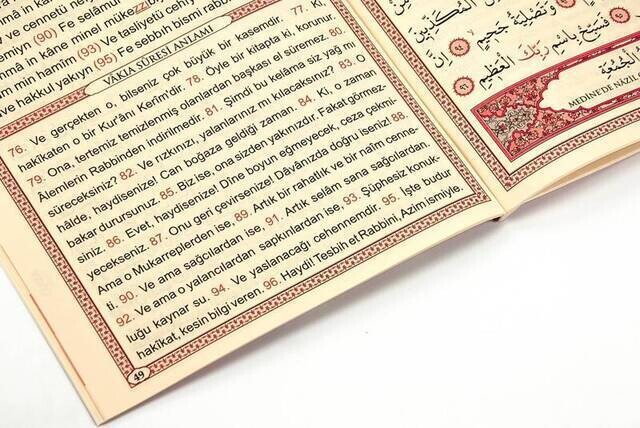 (90) Fe selâmu
mmâ in kâne minel mükezz
min hamîm (93) Ve tasliyetü cehî
ve hakkul yakıyn (95) Fe sebbıh bismi rabb
VÂKIA SÛRESİ ANLAMI
76. Ve gerçekten o, bilseniz çok büyük bir kasemdir. 77. Ki,
hakîkaten o bir Kur'ânı Kerîm'dir. 78. Öyle bir kitapta ki, korunur.
79. Ona, tertemiz temizlenmiş olanlardan başkası el süremez. 80.
Âlemlerin Rabbinden indirilmedir. 81. Şimdi bu kelâma siz yağ mı
süreceksiniz? 82. Ve rızkınızı, yalanlarınız mı kılacaksınız? 83. O
hâlde, haydisenize! Can boğaza geldiği zaman. 84. Ki, o zaman
bakar durursunuz. 85. Biz ise, ona sizden yakınızdır. Fakat görmez-
siniz. 86. Evet, haydisenize! Dîne boyun eğmeyecek, ceza çekmi-
yecekseniz. 87. Onu geri çevirsenize! Dâvânızda doğru iseniz! 88.
Ama o Mukarreplerden ise, 89. Artık bir rahatlık ve bir naîm cenne-
ti. 90. Ve ama sağcılardan ise, 91. Artık selâm sana sağcılardan.
92. Ve ama o yalancılardan sapkınlardan ise, 93. Şüphesiz konuk-
luğu kaynar su. 94. Ve yaslanacağı cehennemdir. 95. İşte budur
hakîkat, kesin bilgi veren. 96. Haydi! Tesbih et Rabbini, Azîm ismiyle.
49
الْمُكَذِّبِينَ
وَتَصْلِيَةُ جَحِيمٍ
إِنَّ
فَسَبِّحْ بِاسْمِ رَبِّكَ الْعَظِيمِ
الْجُمُعَة
MEDİNE'DE NÂZİL